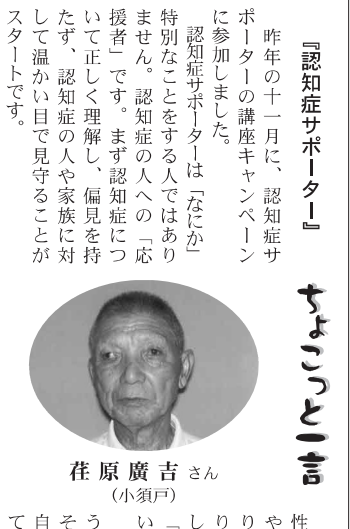 『認知症サポーター』
ちょこっと一言
昨年の十一月に、認知症サ
ポーターの講座キャンペーン
に参加しました。
認知症サポーターは「なにか」
特別なことをする人ではあり
ません。認知症の人への「応
援者」です。まず認知症につ
いて正しく理解し、偏見を持
たず、認知症の人や家族に対
して温かい目で見守ることが
スタートです。
荏原廣吉さん
（小須戸）
性
や
り
り
し
「
い
う
そ
自
て